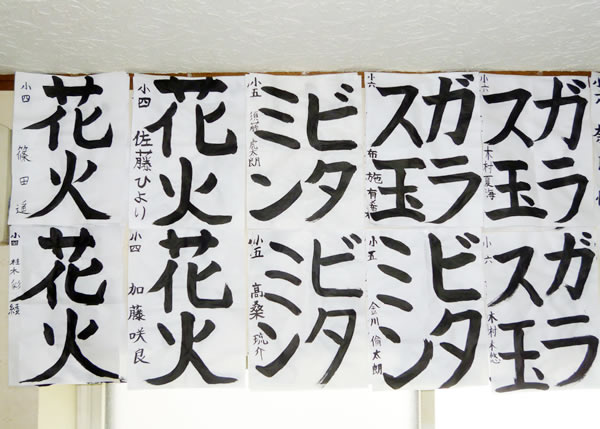 ガラ
ス玉
小六 木村夏海
ガラ
ス玉
小六 布施有希
ビタ
ミン
小五
花火
小四 佐藤ひより
花火
小四 篠田遥
ガラ
ス玉
小六 木村
ビタ
ミン
小五 倫太朗
ビタ
ミン
小五 高桑琉介
花火
小四 加藤咲良
花火
小四